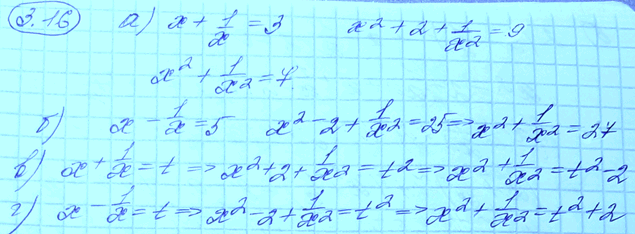 3.16 а) x + 1/x = 3 x² + 2 + 1/x² = 9
x² + 1/x² = 7.
б) x - 1/x = 5 x² - 2 + 1/x² = 25 => x² + 1/x² = 27
в) x + 1/x = t => x² + 2 + 1/x² = t² => x² + 1/x² = t² - 2
г) x - 1/x = t => x² - 2 + 1/x² = t² => x² + 1/x² = t² + 2